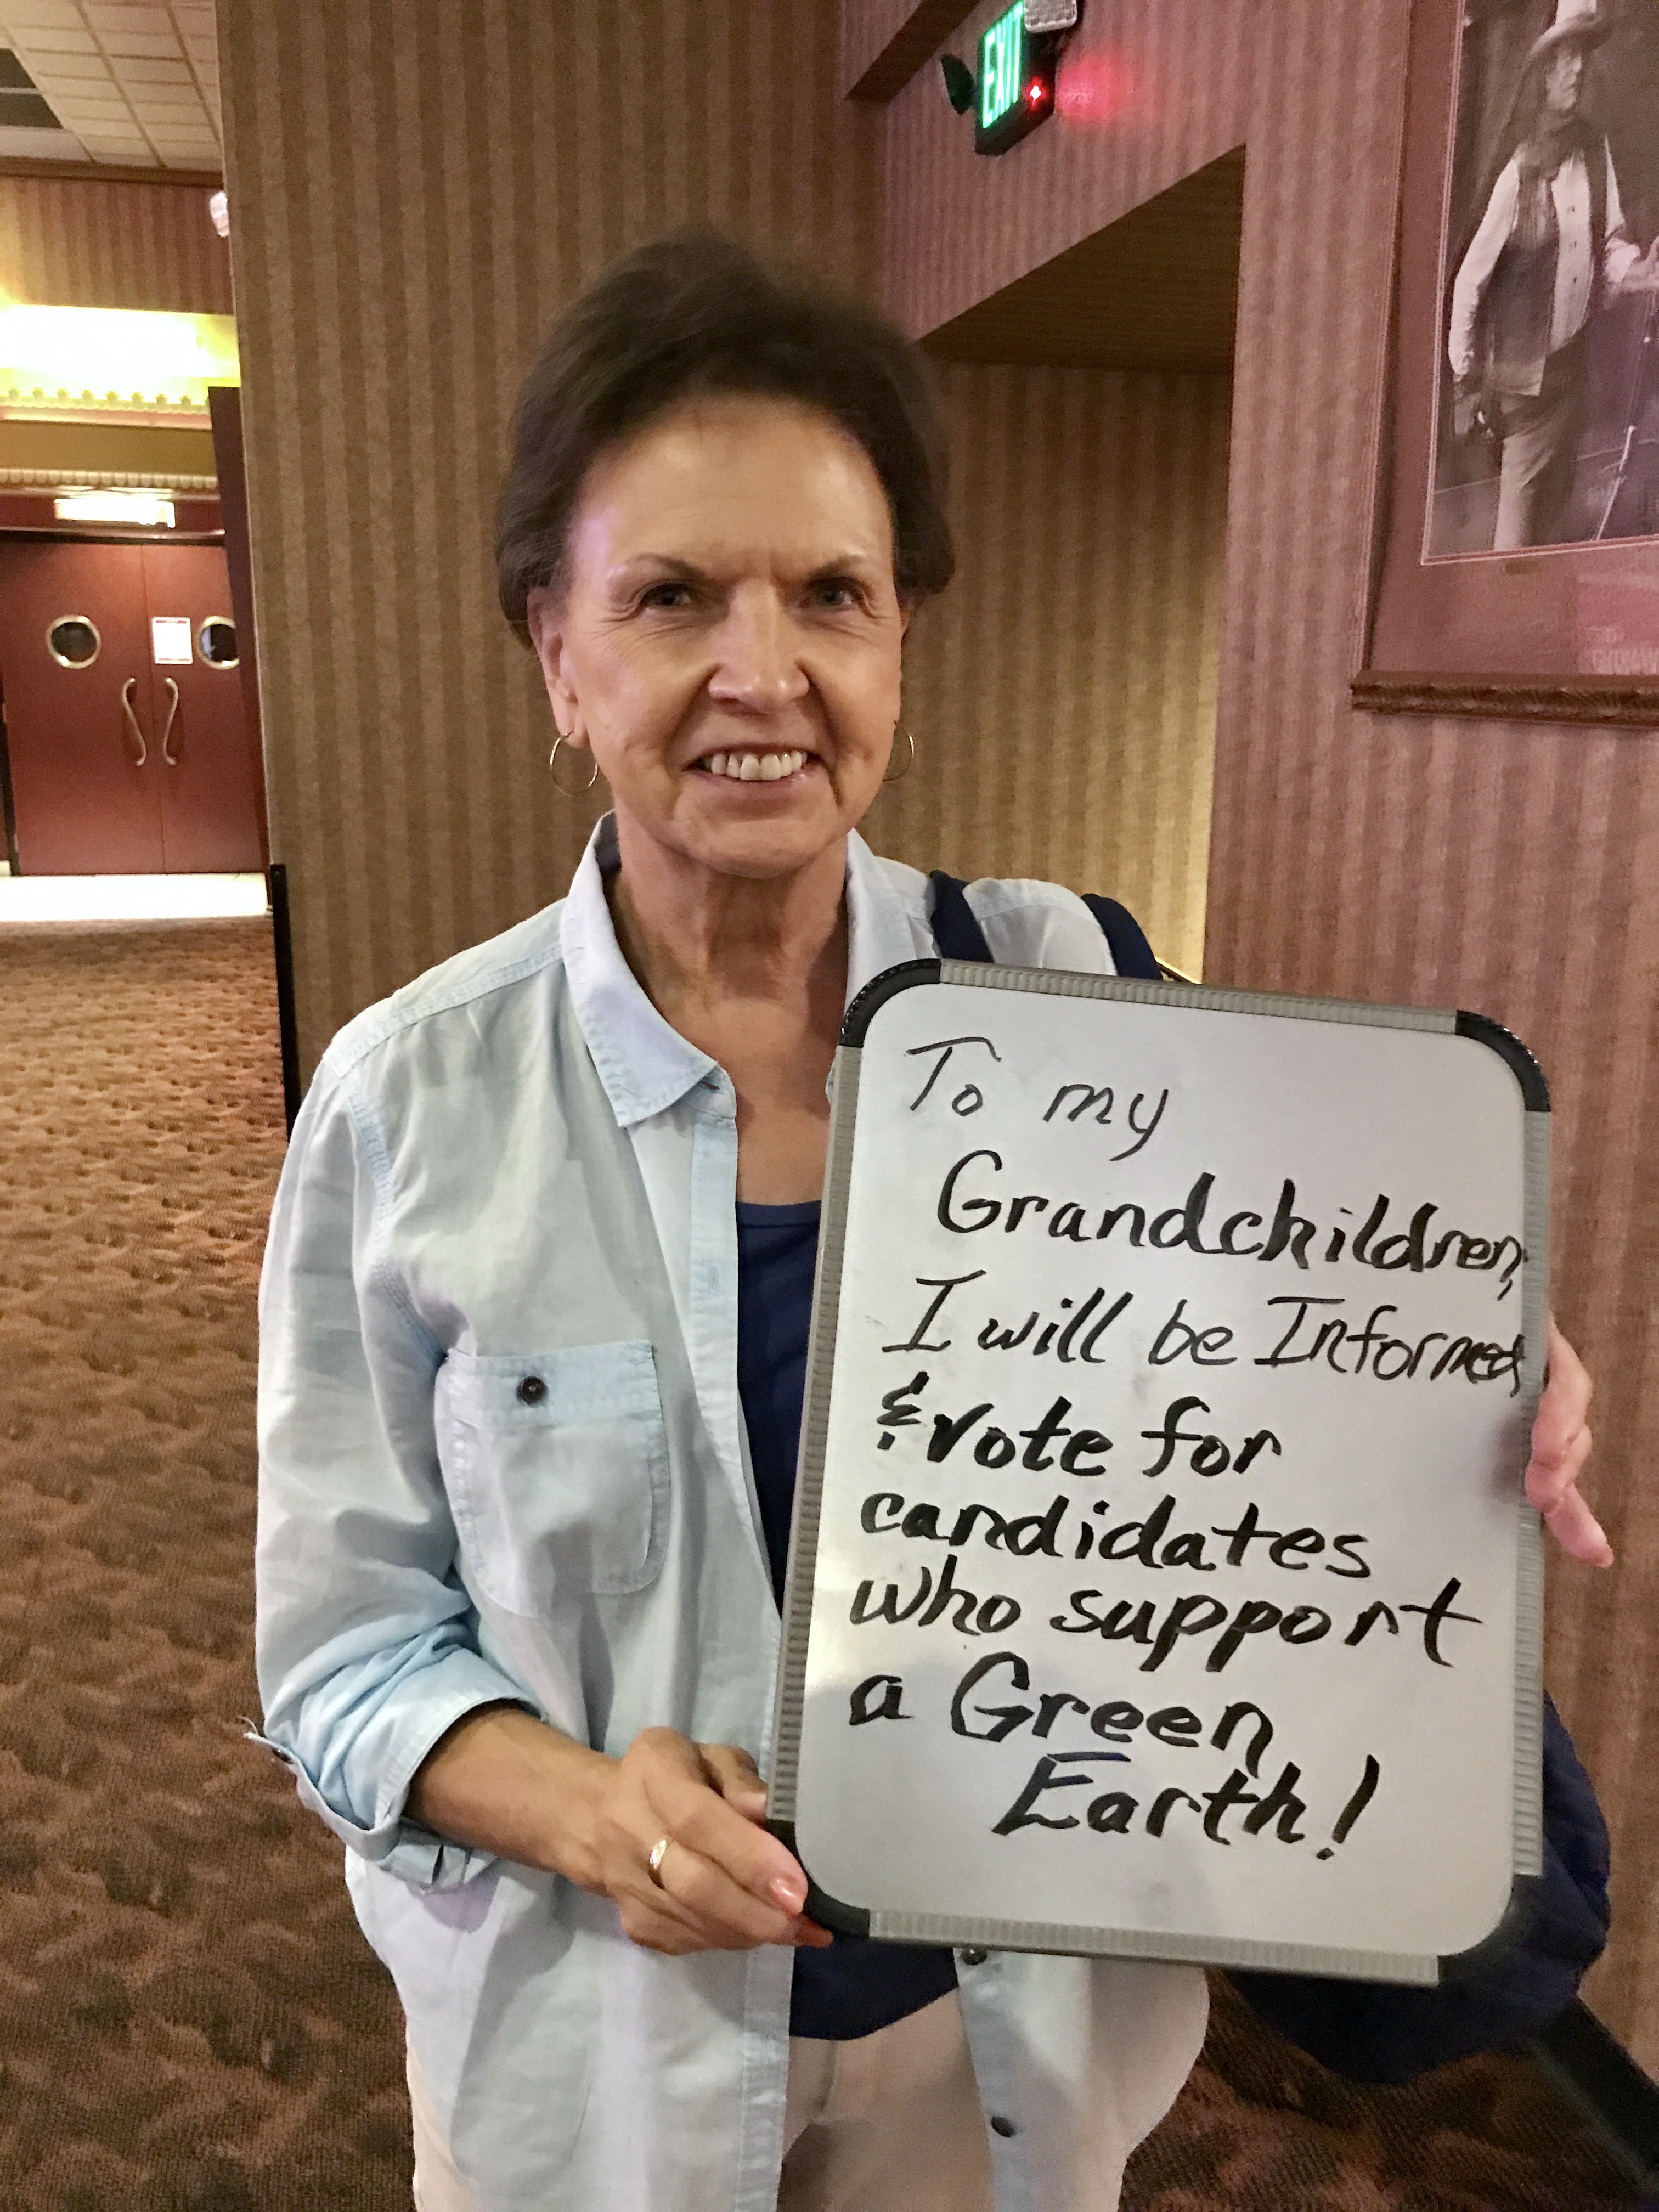 EXIT
To my
Grandchildren,
I will be Informed
& vote for
candidates
who support
a Green
Earth!